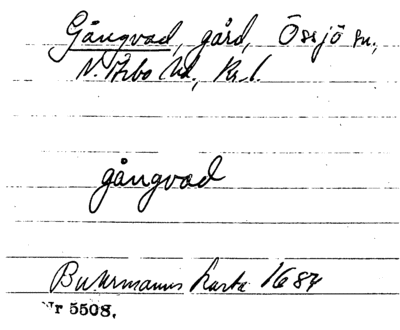 Gångvad, gård, Össjö sn.,
N. Åsbo hd., Kr. l.
gångvad
Buhrmanns karta 1684
Nr 5508.